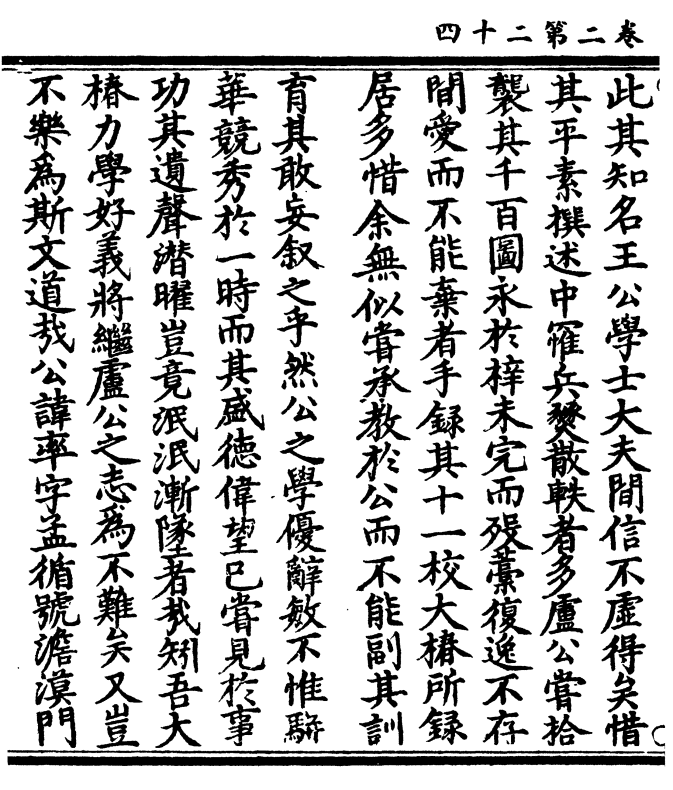 卷二第二十四
此其知名王公學士大夫間信不虛得矣惜
其平素撰述中罹兵燹散軼者多盧公嘗拾
襲其千百圖永於梓未完而歿藁復逸不存
間愛而不能棄者手錄其十一校大椿所錄
居多惜余無似嘗承教於公而不能副其訓
育其敢妄叙之乎然公之學優辭敏不惟駢
華競秀於一時而其盛德偉望已嘗見於事
功其遺聲潜曜豈竟泯泯漸墜者哉矧吾大
椿力學好義將繼盧公之志為不難矣又豈
不樂為斯文道哉公諱率字孟循號澹漠門